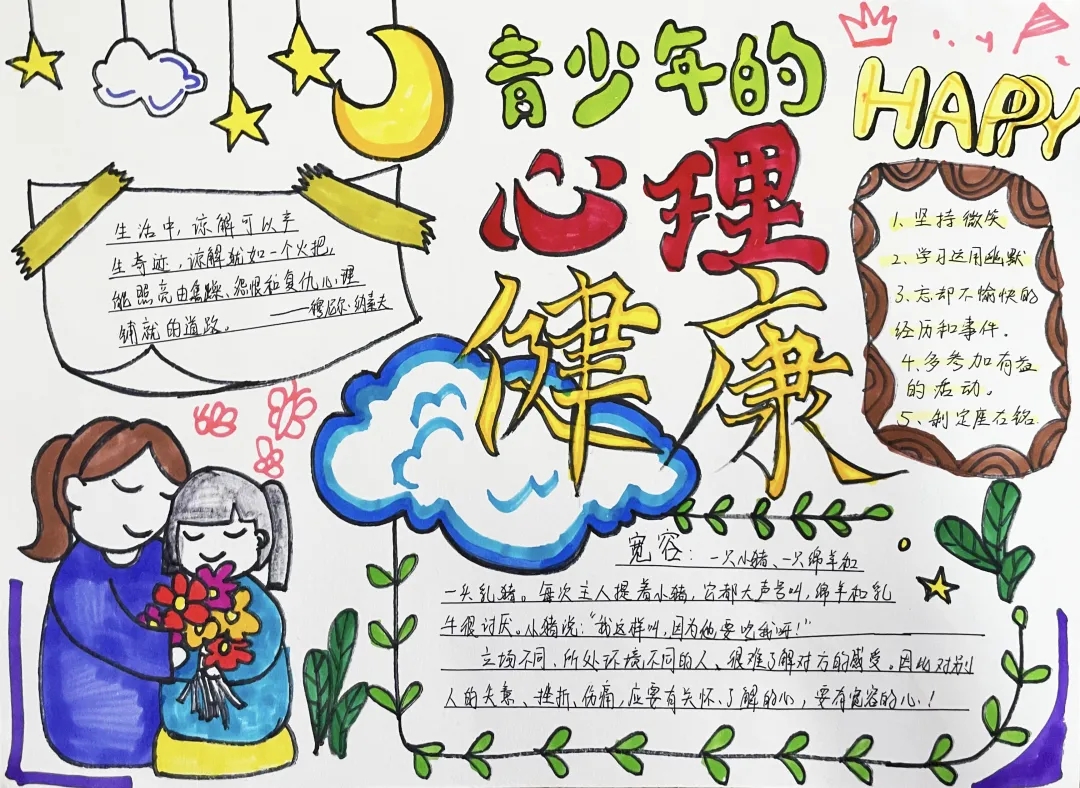 青少年的
心理
健康
HAPPY
生活中,谅解可以产
生奇迹,谅解就如一个火把,
能照亮由焦躁、怨恨和复仇心理
铺就的道路。——穆尼尔·纳素夫
1、坚持微笑
2、学习运用幽默
3、忘却不愉快的
经历和事件.
4、多参加有益
的活动。
5、制定座右铭
宽容:一只小猪、一只绵羊和
一头乳猪。每次主人提着小猪,它都大声号叫,绵羊和乳
牛很讨厌。小猪说:“我这样叫,因为他要吃我呀!”
立场不同、所处环境不同的人、很难了解对方的感受。因此对别
人的失意、挫折、伤痛,应要有关怀、了解的心,要有宽容的心!